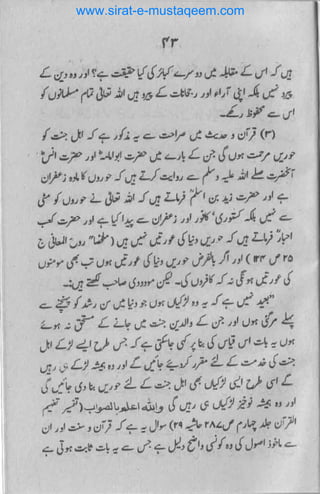 www.sirat-e-mustaqeem.com
۴۳
ہیں کہ اس کے مقابلہ میں دوسرے کبائر کی کیا حقیقت ہے؟ اور وہ دین کے
پیرو نہیں بلکہ اپنی آراء اور رجحانات کے پیرو ہیں اللہ تعالیٰ تمام مسلمانوں کو
اس سے محفوظ رکھے۔
(۳) قرآن و حدیث میں صراحت سے یہ مذکور ہے کہ اہل جنت کو
حوریں مرحمت ہوں گی جن کے بارے میں حضرت ابوامامہؓ اور حضرت انسؓ
آنحضرت صلی اللہ علیہ وسلم سے روایت کرتے ہیں کہ حوروں کا مادہ زعفران
ہے اور حضرت زید بن اسلمؓ فرماتے ہیں کہ اللہ تعالیٰ نے حوروں کو مٹی
سے نہیں بلکہ کستوری، کافور اور زعفران سے پیدا کیا ہے اور حضرت کعب
احبارؒ فرماتے ہیں کہ حوریں دنیا کی عورتیں نہیں ہیں (ملخصاً روح المعانی ج
۲۵ ص ۱۲۴) اور اگر بالفرض حوریں دنیا کی عورتیں ہوں تب بھی مومنوں
کی عورتیں ہوں گی نہ کہ کافروں کی۔ لیکن مودودی صاحب لکھتے ہیں:۔
"بعید نہیں ہے کہ یہ وہ لڑکیاں ہوں جو دنیا میں سن رشد کو پہنچنے سے
پہلے مر گئی ہوں اور جن کے والدین جنت میں جانے کے مستحق نہ ہوئے
ہوں یہ بات اس قیاس کی بنا پر کہی جا سکتی ہے کہ جس طرح ایسے لڑکے اہل
جنت کی خدمت کے لئے مقرر کر دیئے جائیں گے اور وہ ہمیشہ لڑکے ہی رہیں
گے اسی طرح ایسی لڑکیاں بھی اہل جنت کے لئے حوریں بنا دی جائیں گی
اور وہ ہمیشہ نوخیز لڑکیاں ہی رہیں گی واللہ اعلم بالصواب) (تفسیر تفہیم
القرآن جلد چہارم ص ۲۸۷ حاشیہ ۲۹) سوال یہ ہے کہ قرآن و سنت اور ان
سے ماخوذ اصول کی وہ کونسی واضح دلیل ہے جس سے یہ بات ثابت ہوتی ہے